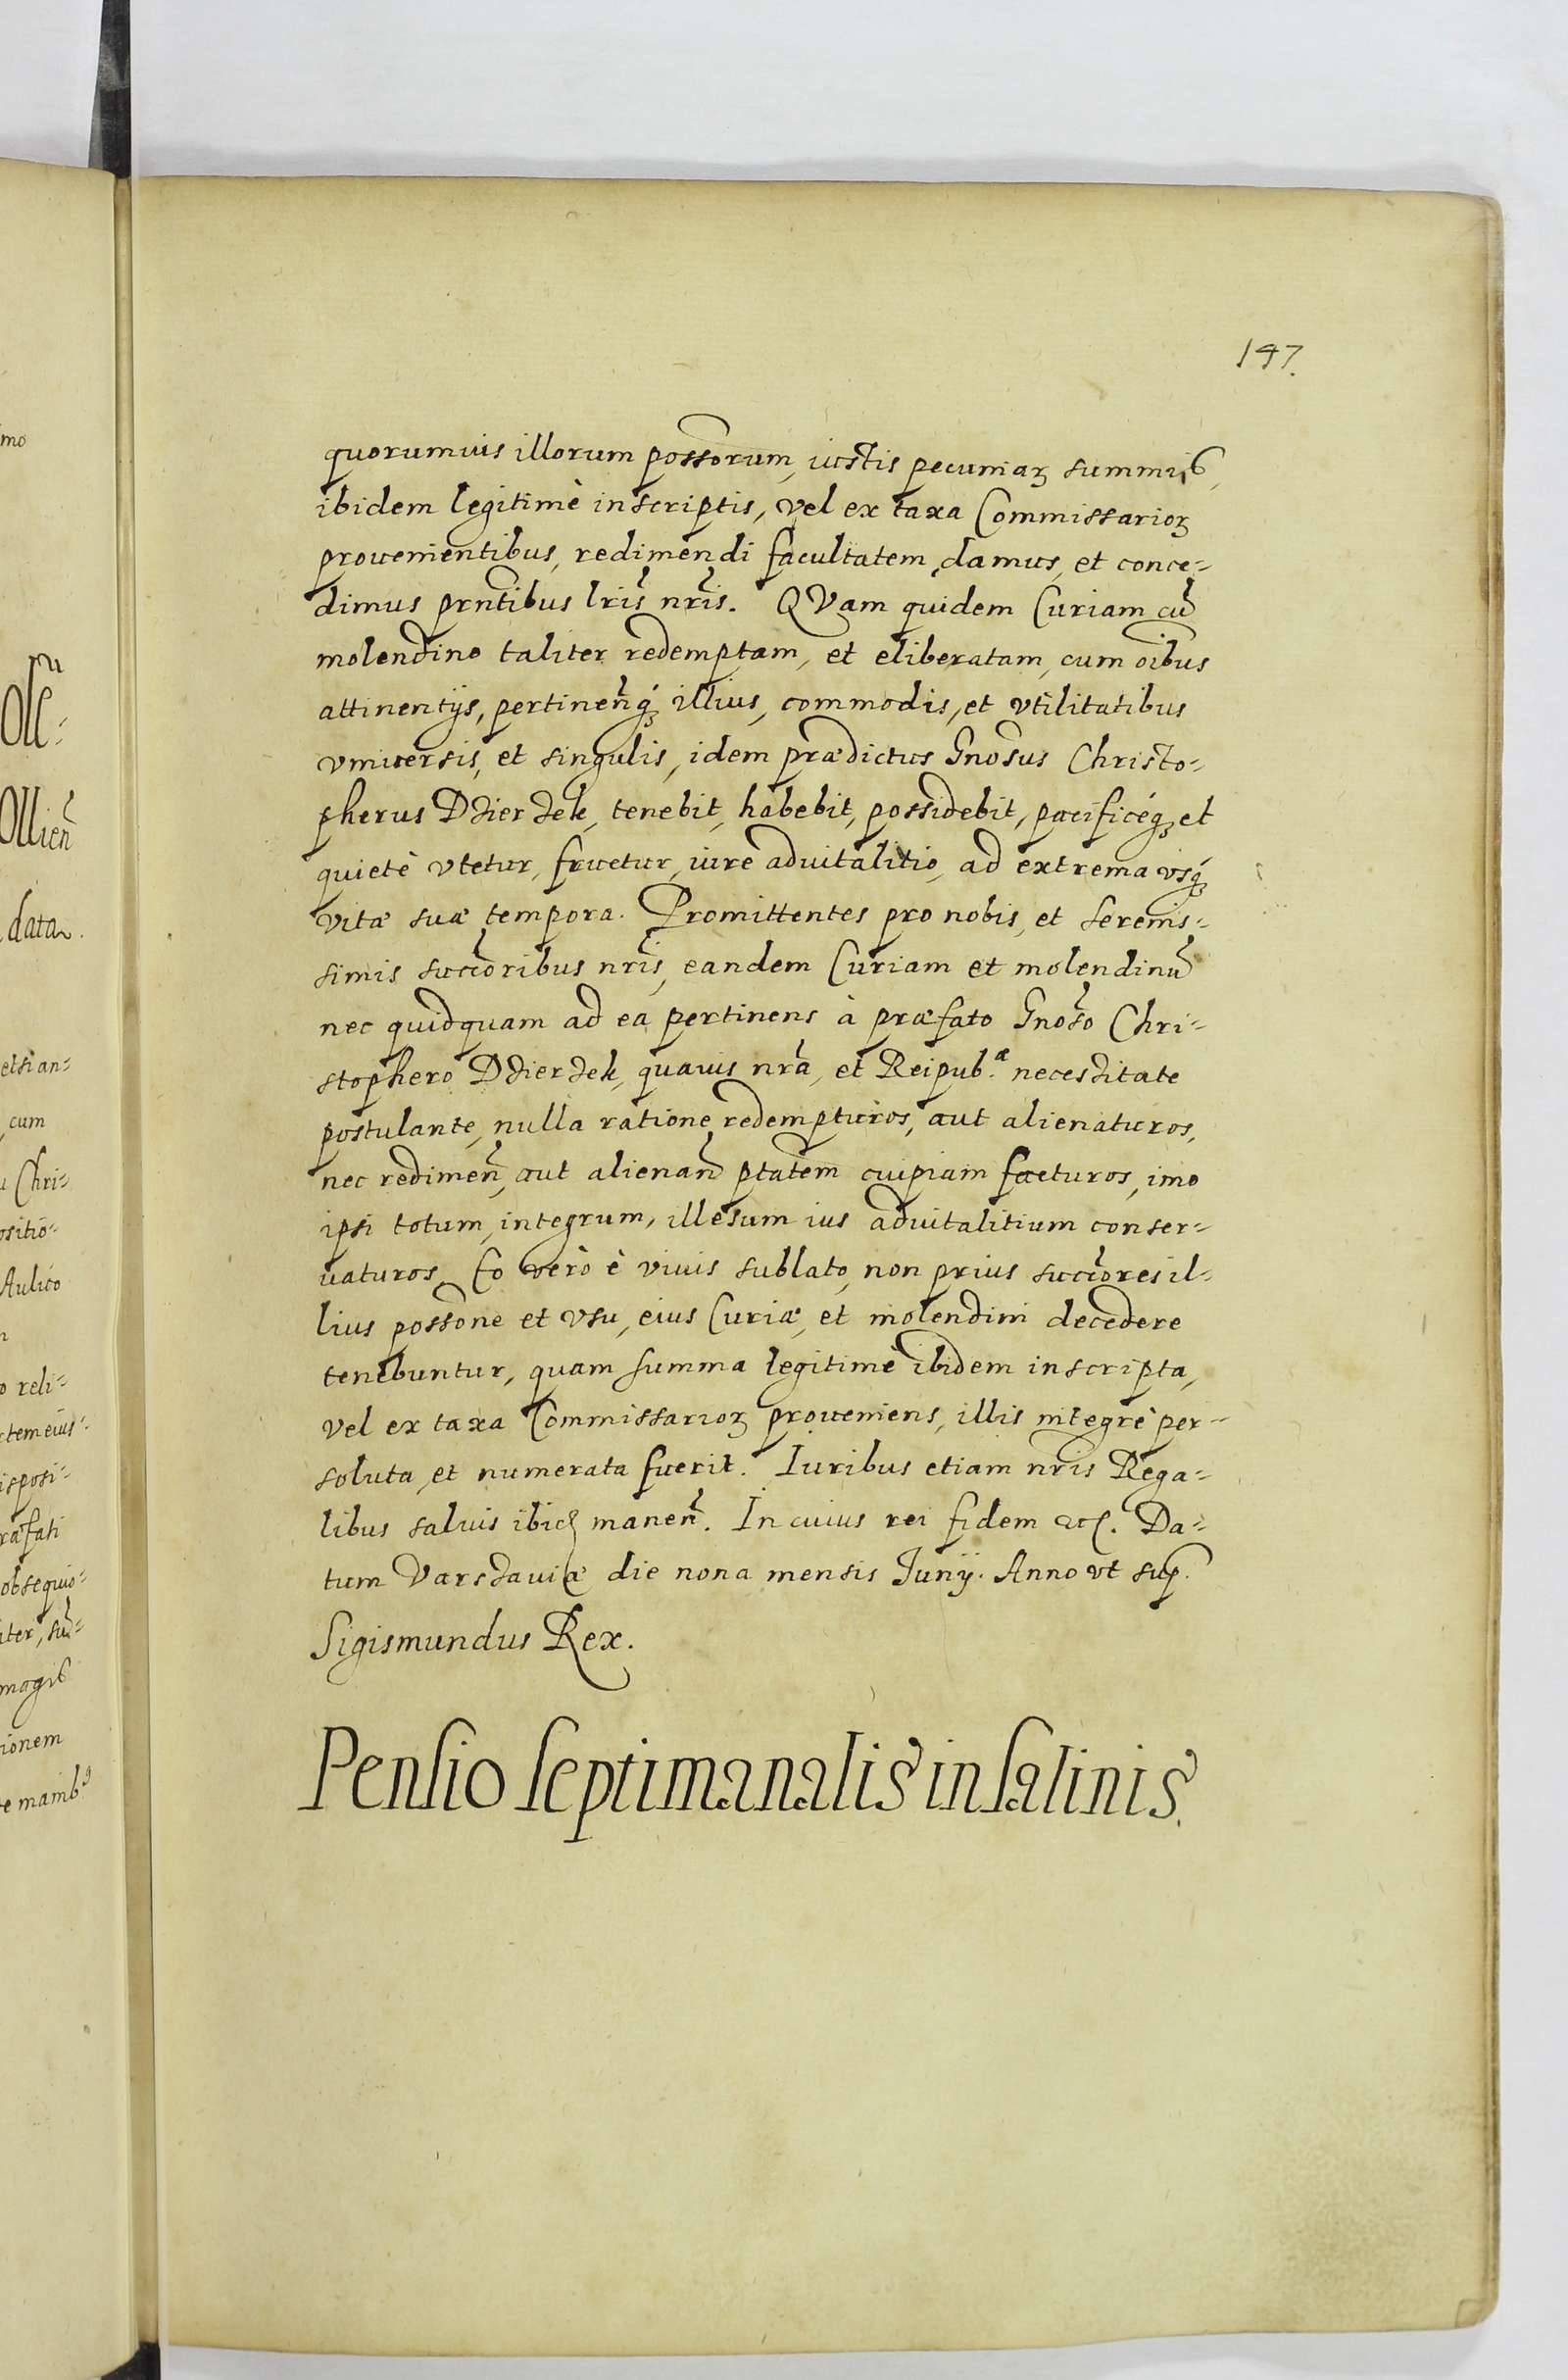 147.
quorumuis illorum possorum, iustis pecuniaꝝ summis,
ibidem legitimè inscriptis, vel ex taxa Commissarioꝝ
prouenientibus, redimendi facultatem damus, et conce-
dimus prntibus lris nris. QVam quidem Curiam cũ
molendino taliter redemptam, et eliberatam, cum oibus
attinentijs, pertinenꝗ illius, commodis, et vtilitatibus
vniuersis, et singulis, idem prædictus Gnosus Christo-
pherus Dzierzek, tenebit, habebit, possidebit, pacificéꝗ et
quietè vtetur, fruetur, iure aduitalitio, ad extrema vsꝗ
vitæ suæ tempora. Promittentes pro nobis, et Serenis-
simis succoribus nris, eandem Curiam et molendinũ
nec quidquam ad ea pertinens à præfato Gnoso Chri-
stophero Dzierzek, quauis nra, et Reipub.æ necessitate
postulante, nulla ratione redempturos, aut alienaturos,
nec redimen, aut alienan ptatem cuipiam facturos, imo
ipsi totum, integrum, illesum ius aduitalitium conser-
uaturos. Eo verò è viuis sublato, non prius succores il-
lius possone et vsu, eius Curiæ, et molendini decedere
tenebuntur, quam summa legitimè ibidem inscripta,
vel ex taxa Commissarioꝝ proueniens, illis integrè per-
soluta, et numerata fuerit. Iuribus etiam nris Rega-
libus saluis ibid manen. In cuius rei fidem etc. Da-
tum Varssauiæ die nona mensis Junij. Anno vt sup.
Sigismundus Rex.
Pensio septimanalis in salinis.